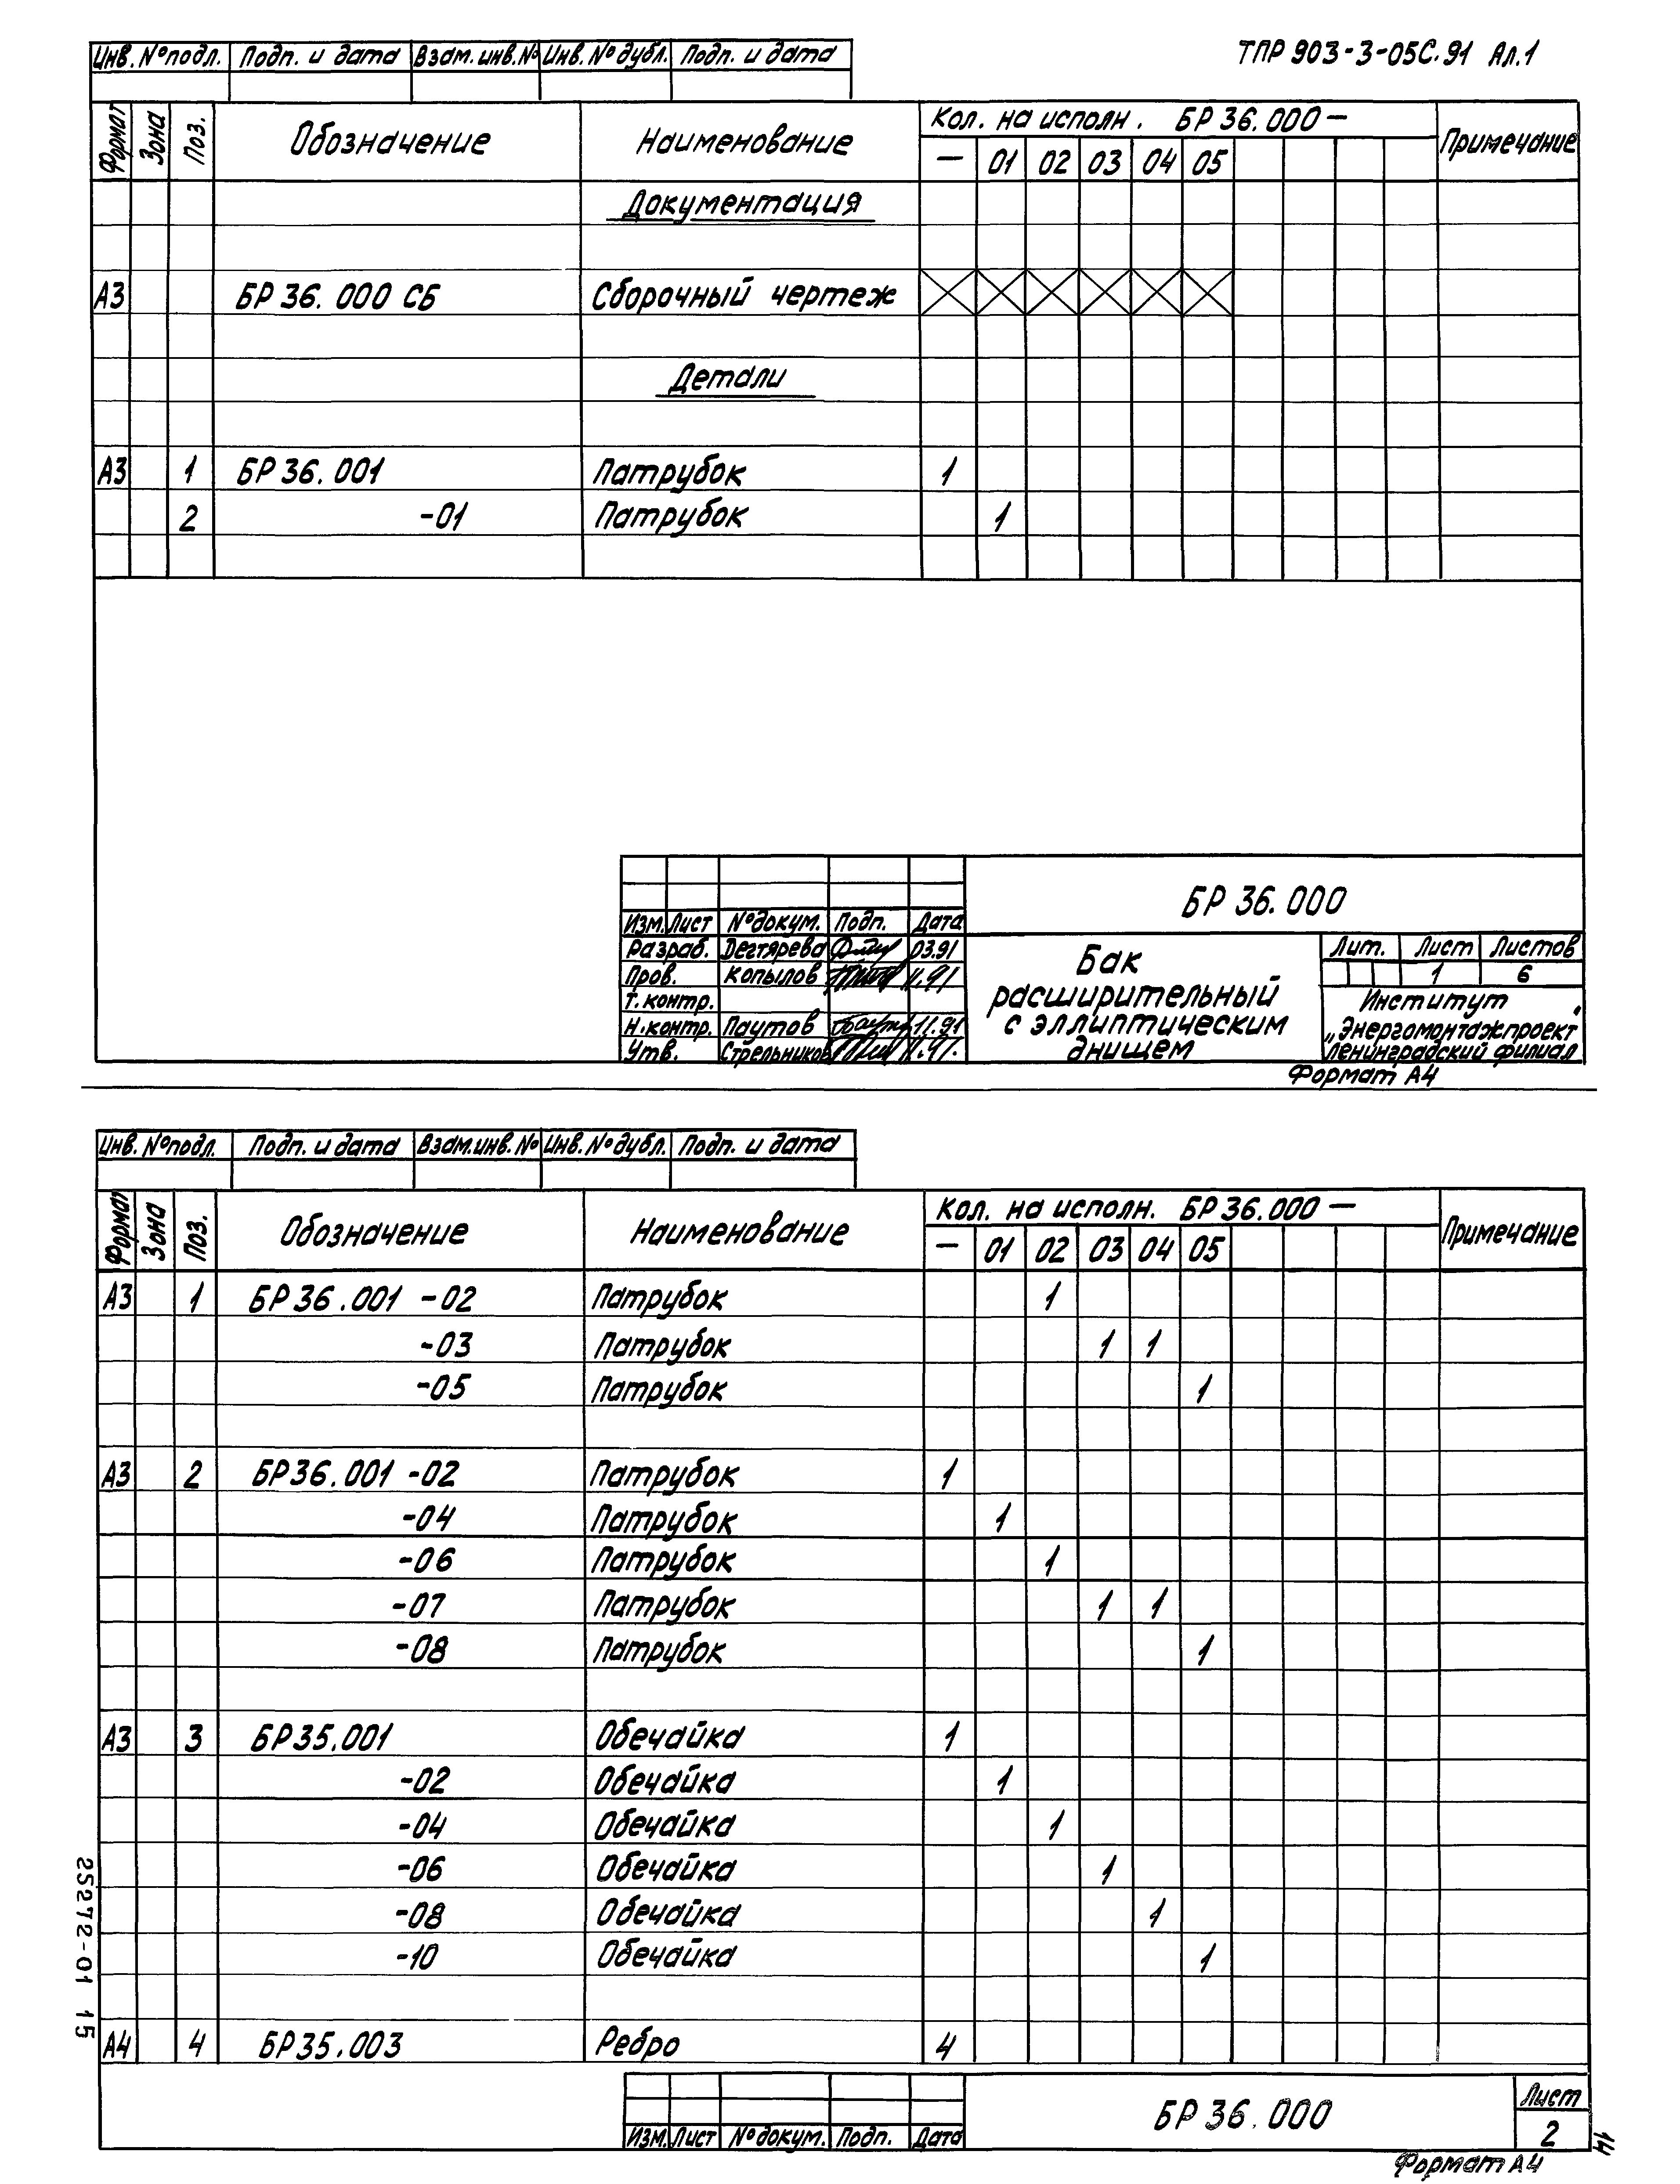 ТПР 903-3-05С.91 Ал.1
Инв. № подл. Подп. и дата Взам. инв. № Инв. № дубл. Подп. и дата
Формат Зона Поз. Обозначение Наименование Кол. на исполн. БР 36.000 — Примечание
— 01 02 03 04 05
Документация
А3 БР 36.000 СБ Сборочный чертеж
Детали
А3 1 БР 36.001 Патрубок 1
2 -01 Патрубок 1
БР 36.000
Изм. Лист № докум. Подп. Дата
Разраб. Дегтярева 03.91
Пров. Копылов 11.91
Т. контр.
Н. контр. Паутов 11.91
Утв. Стрельников 11.91.
Бак
расширительный
с эллиптическим
днищем
Лит. Лист Листов
1 6
Институт
„Энергомонтажпроект"
Ленинградский филиал
Формат А4
Инв. № подл. Подп. и дата Взам. инв. № Инв. № дубл. Подп. и дата
Формат Зона Поз. Обозначение Наименование Кол. на исполн. БР 36.000 — Примечание
— 01 02 03 04 05
А3 1 БР 36.001 -02 Патрубок 1
-03 Патрубок 1 1
-05 Патрубок 1
А3 2 БР 36.001 -02 Патрубок 1
-04 Патрубок 1
-06 Патрубок 1
-07 Патрубок 1 1
-08 Патрубок 1
А3 3 БР 35.001 Обечайка 1
-02 Обечайка 1
-04 Обечайка 1
-06 Обечайка 1
-08 Обечайка 1
-10 Обечайка 1
А4 4 БР 35.003 Ребро 4
Изм. Лист № докум. Подп. Дата
БР 36.000
Лист
2
Формат А4
25272-01 15
14